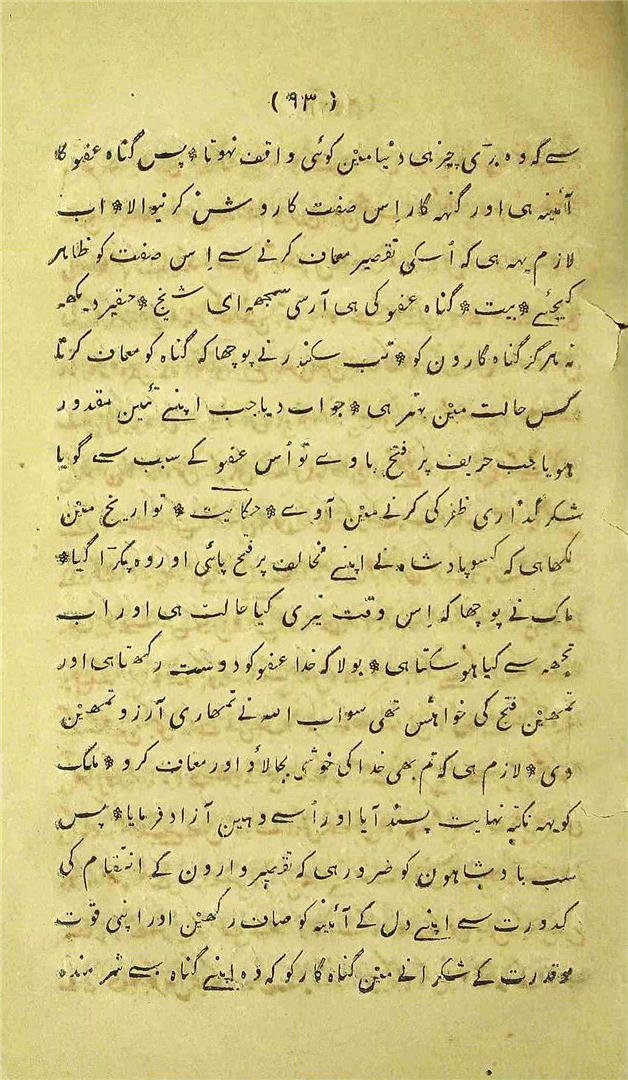 (۹۳)
سے کہ وہ بری چیز ہی دنیا مین کوئی واقف نہوتا * پس گناہ عفو کا
آئینہ ہی اور گنہہ گار اِس صفت کا روشن کرنیوالا * اب
لازم یہہ ہی کہ اُسکی تقصیر معاف کرنے سے اِس صفت کو ظاہر
کیجئے * بیت * گناہ عفو کی ہی آرسی سمجھہ ای شیخ * حقیر دیکھہ
نہ ہرگز گناہ گارون کو * تب سکندر نے پوچھا کہ گناہ کو معاف کرنا
کس حالت مین بہتر ہی * جواب دیا جب اپنے تئین مقدور
ہو یا جب حریف پر فتح پاوے تو اُس عفو کے سبب سے گویا
شکر گذاری ظفر کی کرنے مین آوے * حکایت * تواریخ مین
لکھا ہی کہ کسو پادشاہ نے اپنے مخالف پر فتح پائی اور وہ پکڑا گیا *
ملک نے پوچھا کہ اِس وقت تیری کیا حالت ہی اور اب
تجھہ سے کیا ہو سکتا ہی * بولا کہ خدا عفو کو دوست رکھتا ہی اور
تمھین فتح کی خواہش تھی سو اب اللہ نے تمھاری آرزو تمھین
دی * لازم ہی کہ تم بھی خدا کی خوشی بجالاؤ اور معاف کرو * ملک
کو یہہ نکتہ نہایت پسند آیا اور اُسے وہین آزاد فرمایا * پس
سب بادشاہون کو ضرور ہی کہ تقصیر وارون کے انتقام کی
کدورت سے اپنے دل کے آئینہ کو صاف رکھین اور اپنی قوّت
و قدرت کے شکرانے مین گناہ گار کو کہ وہ اپنے گناہ سے شرمندہ